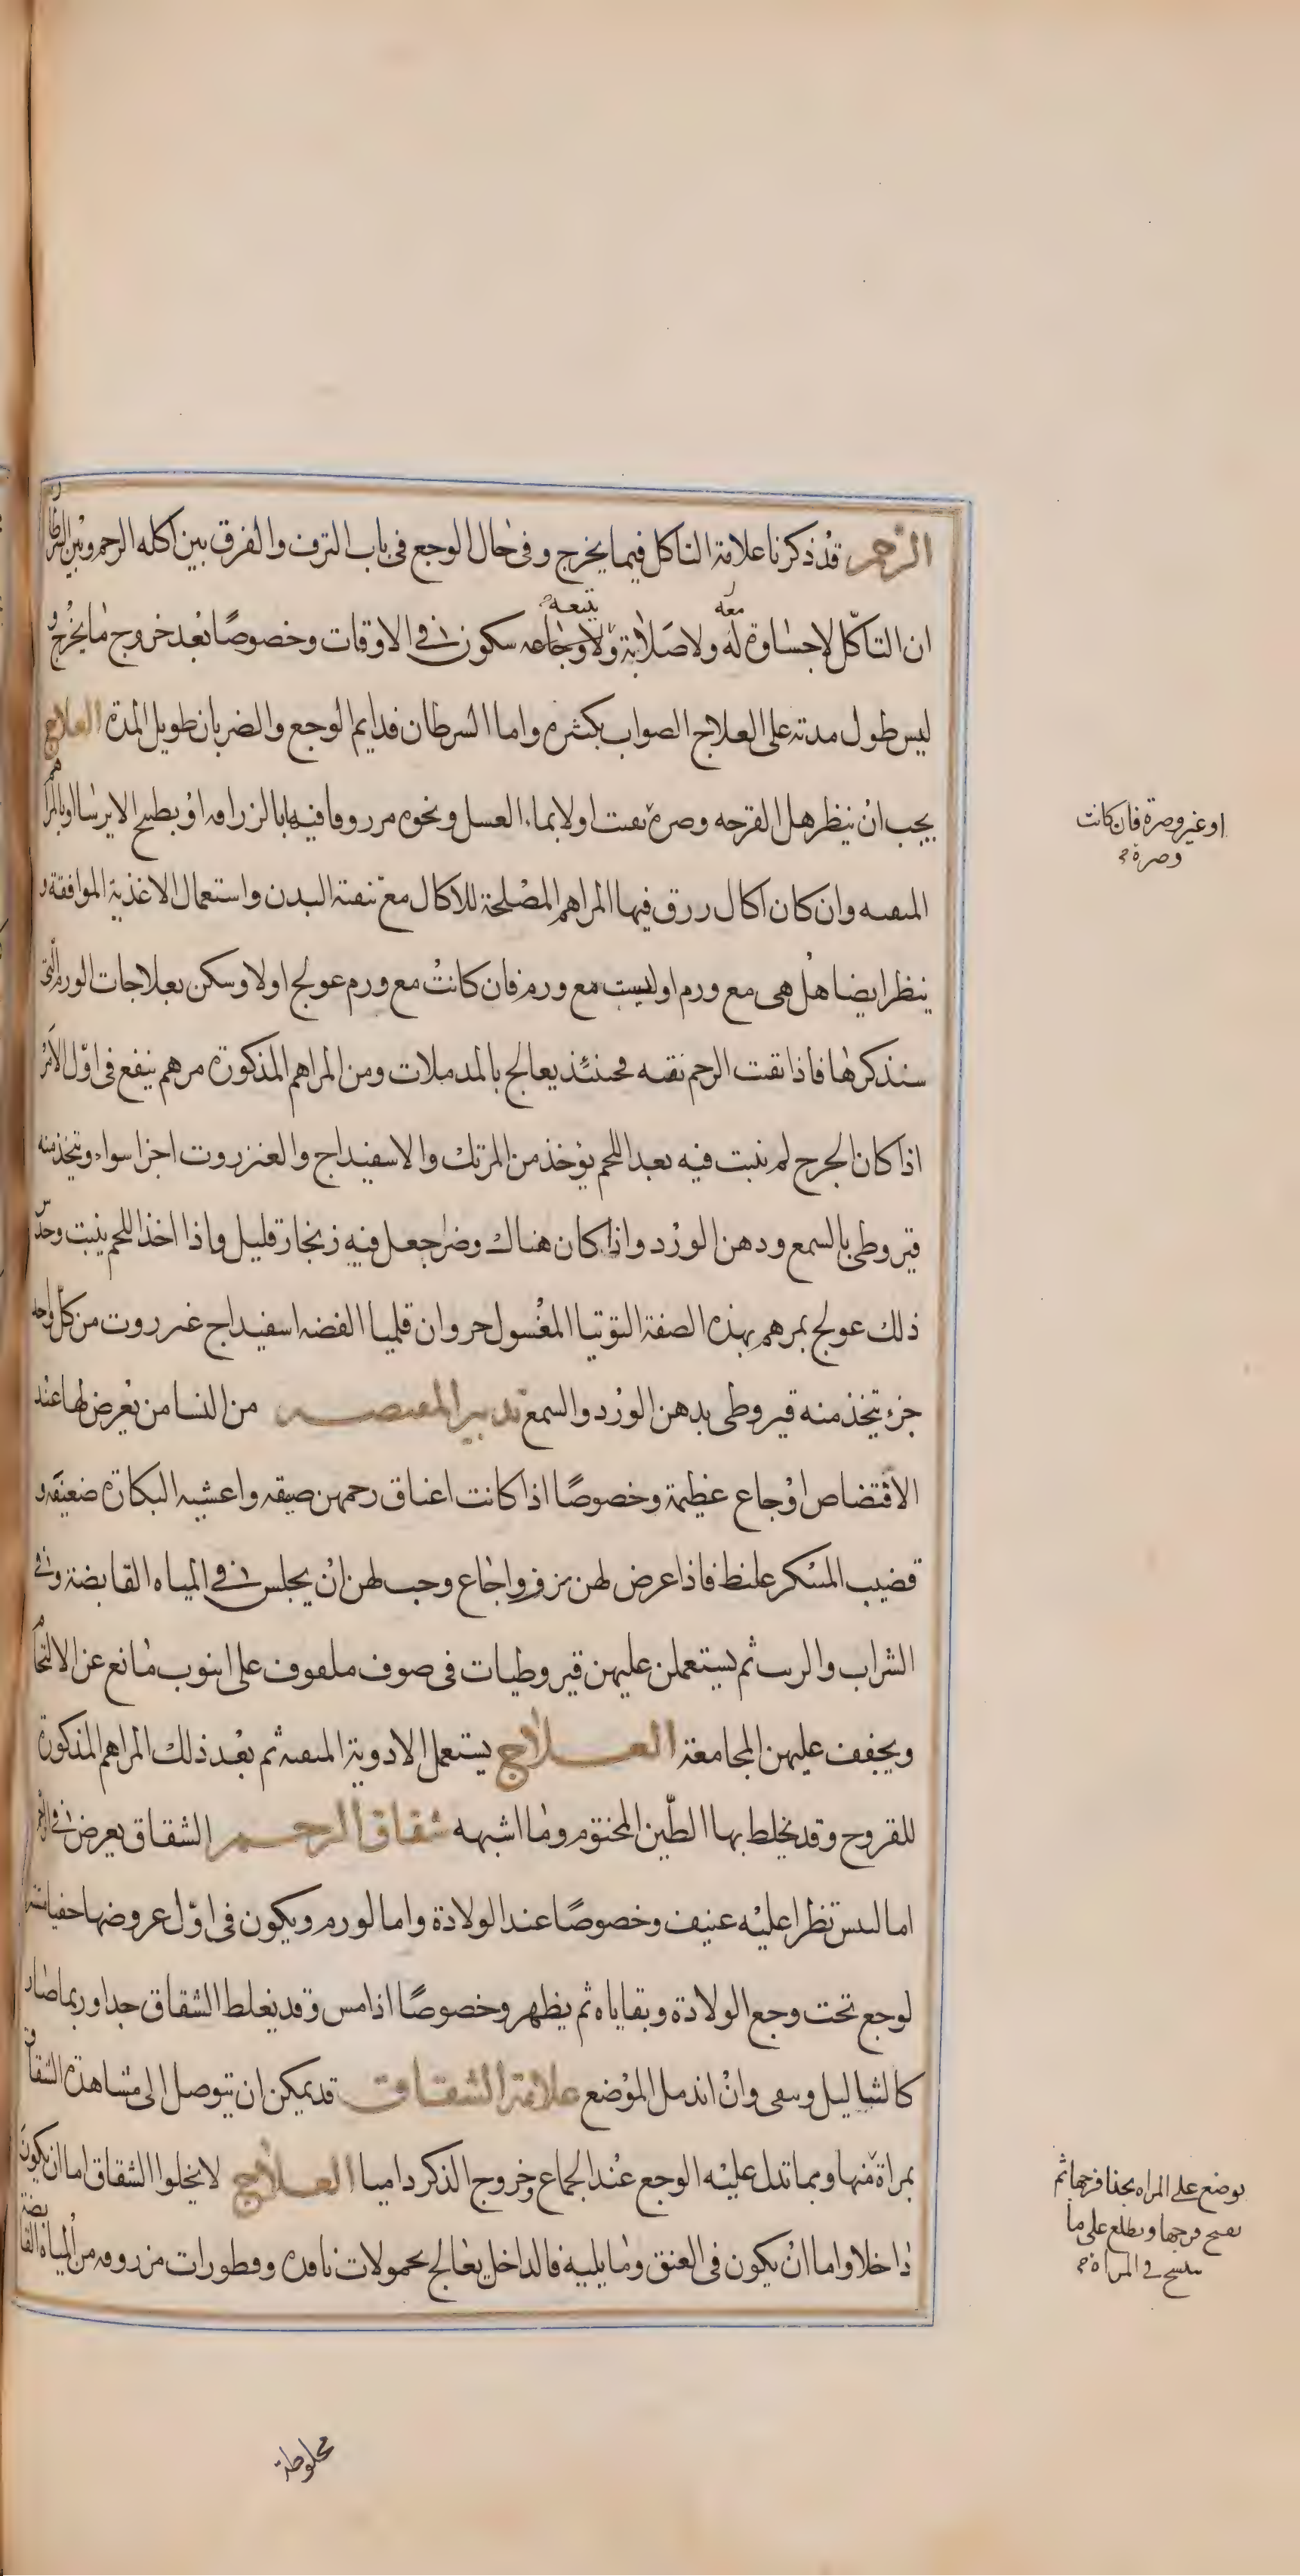 الرحم قد ذكرنا علامة التاكل فيما يخرج وفى حال الوجع فى باب النزف والفرق بين اكله الرحم وبين السرطان
ان التاكّل لاجساوة له معه ولا صلابة ولا وجاعه يتبعه سكون فى الاوقات وخصوصًا بعد خروج ما يخرج و
ليس طول مدته على العلاج الصواب بكثيره واما السرطان فدايم الوجع والضربان طويل المدة العلاج
يجب ان ينظر هل القرحه وصره نقيت اولا بماء العسل ونحوه مزروقا فيها بالزراقه او بطبيخ الايرسا او بالمراهم
المنقيه وان كان اكال زرق فيها المراهم المصلحة للاكال مع تنقية البدن واستعمال الاغذية الموافقة و
ينظر ايضا هل هى مع ورم او ليست مع ورم فان كانت مع ورم عولج اولا وسكن بعلاجات الورم التى
سنذكرها فاذا نقيت الرحم نقيه فحينئذ يعالج بالمدملات ومن المراهم المذكورة مرهم ينفع فى اوّل الامر
اذا كان الجرح لم ينبت فيه بعد اللحم يؤخذ من المرتك والاسفيداج والعنزروت اجزا سواء ويتخذ منه
قيروطى بالشمع ودهن الورد واذا كان هناك وضر جعل فيه زنجار قليل واذا اخذ اللحم ينبت وحدس
ذلك عولج بمرهم بهذه الصفة التوتيا المغسول جزوان قليميا الفضه اسفيداج عنزروت من كل واحد
جزء يتخذ منه قيروطى بدهن الورد والشمع تدبير المفتضه من النسا من يعرض لها عند
الافتضاض اوجاع عظيمة وخصوصًا اذا كانت اعناق رحمهن ضيقه واغشيه البكارة ضعيفه و
قضيب المبتكر غليظ فاذا عرض لهن نزف واجاع وجب لهن ان يجلس فى المياه القابضة وفى
الشراب والزيت ثم يستعملن عليهن قيروطيات فى صوف ملفوف على انبوب مانع عن الالتحام
ويخفف عليهن المجامعة العلاج يستعمل الادوية المنقيه ثم بعد ذلك المراهم المذكورة
للقروح وقد يخلط بها الطين المختوم وما اشبهه شقاق الرحم الشقاق يعرض فى الرحم
اما ليبس تطرا عليه عنيف وخصوصًا عند الولادة واما لورم ويكون فى اوّل عروضها خفيا
لوجع تحت وجع الولادة وبقاياه ثم يظهر وخصوصًا اذا مس وقد يغلظ الشقاق جدا وربما صار
كالثاليل وبقى وان اندمل الموضع علامة الشقاق قد يمكن ان يتوصل الى مشاهدة الشقاق
بمراة منها وبما تدل عليه الوجع عند الجماع وخروج الذكر داميا العلاج لا يخلوا الشقاق اما ان يكون
داخلا واما ان يكون فى العنق وما يليه فالداخل يعالج بحمولات نافذه وقطورات مزروقه من المياه القابضة
مخلوطة
او غير وصرة فان كانت
وصرة
يوضع على المراه بحذا فرجها ثم
يفتح فرجها ويطلع على ما
فى المراة